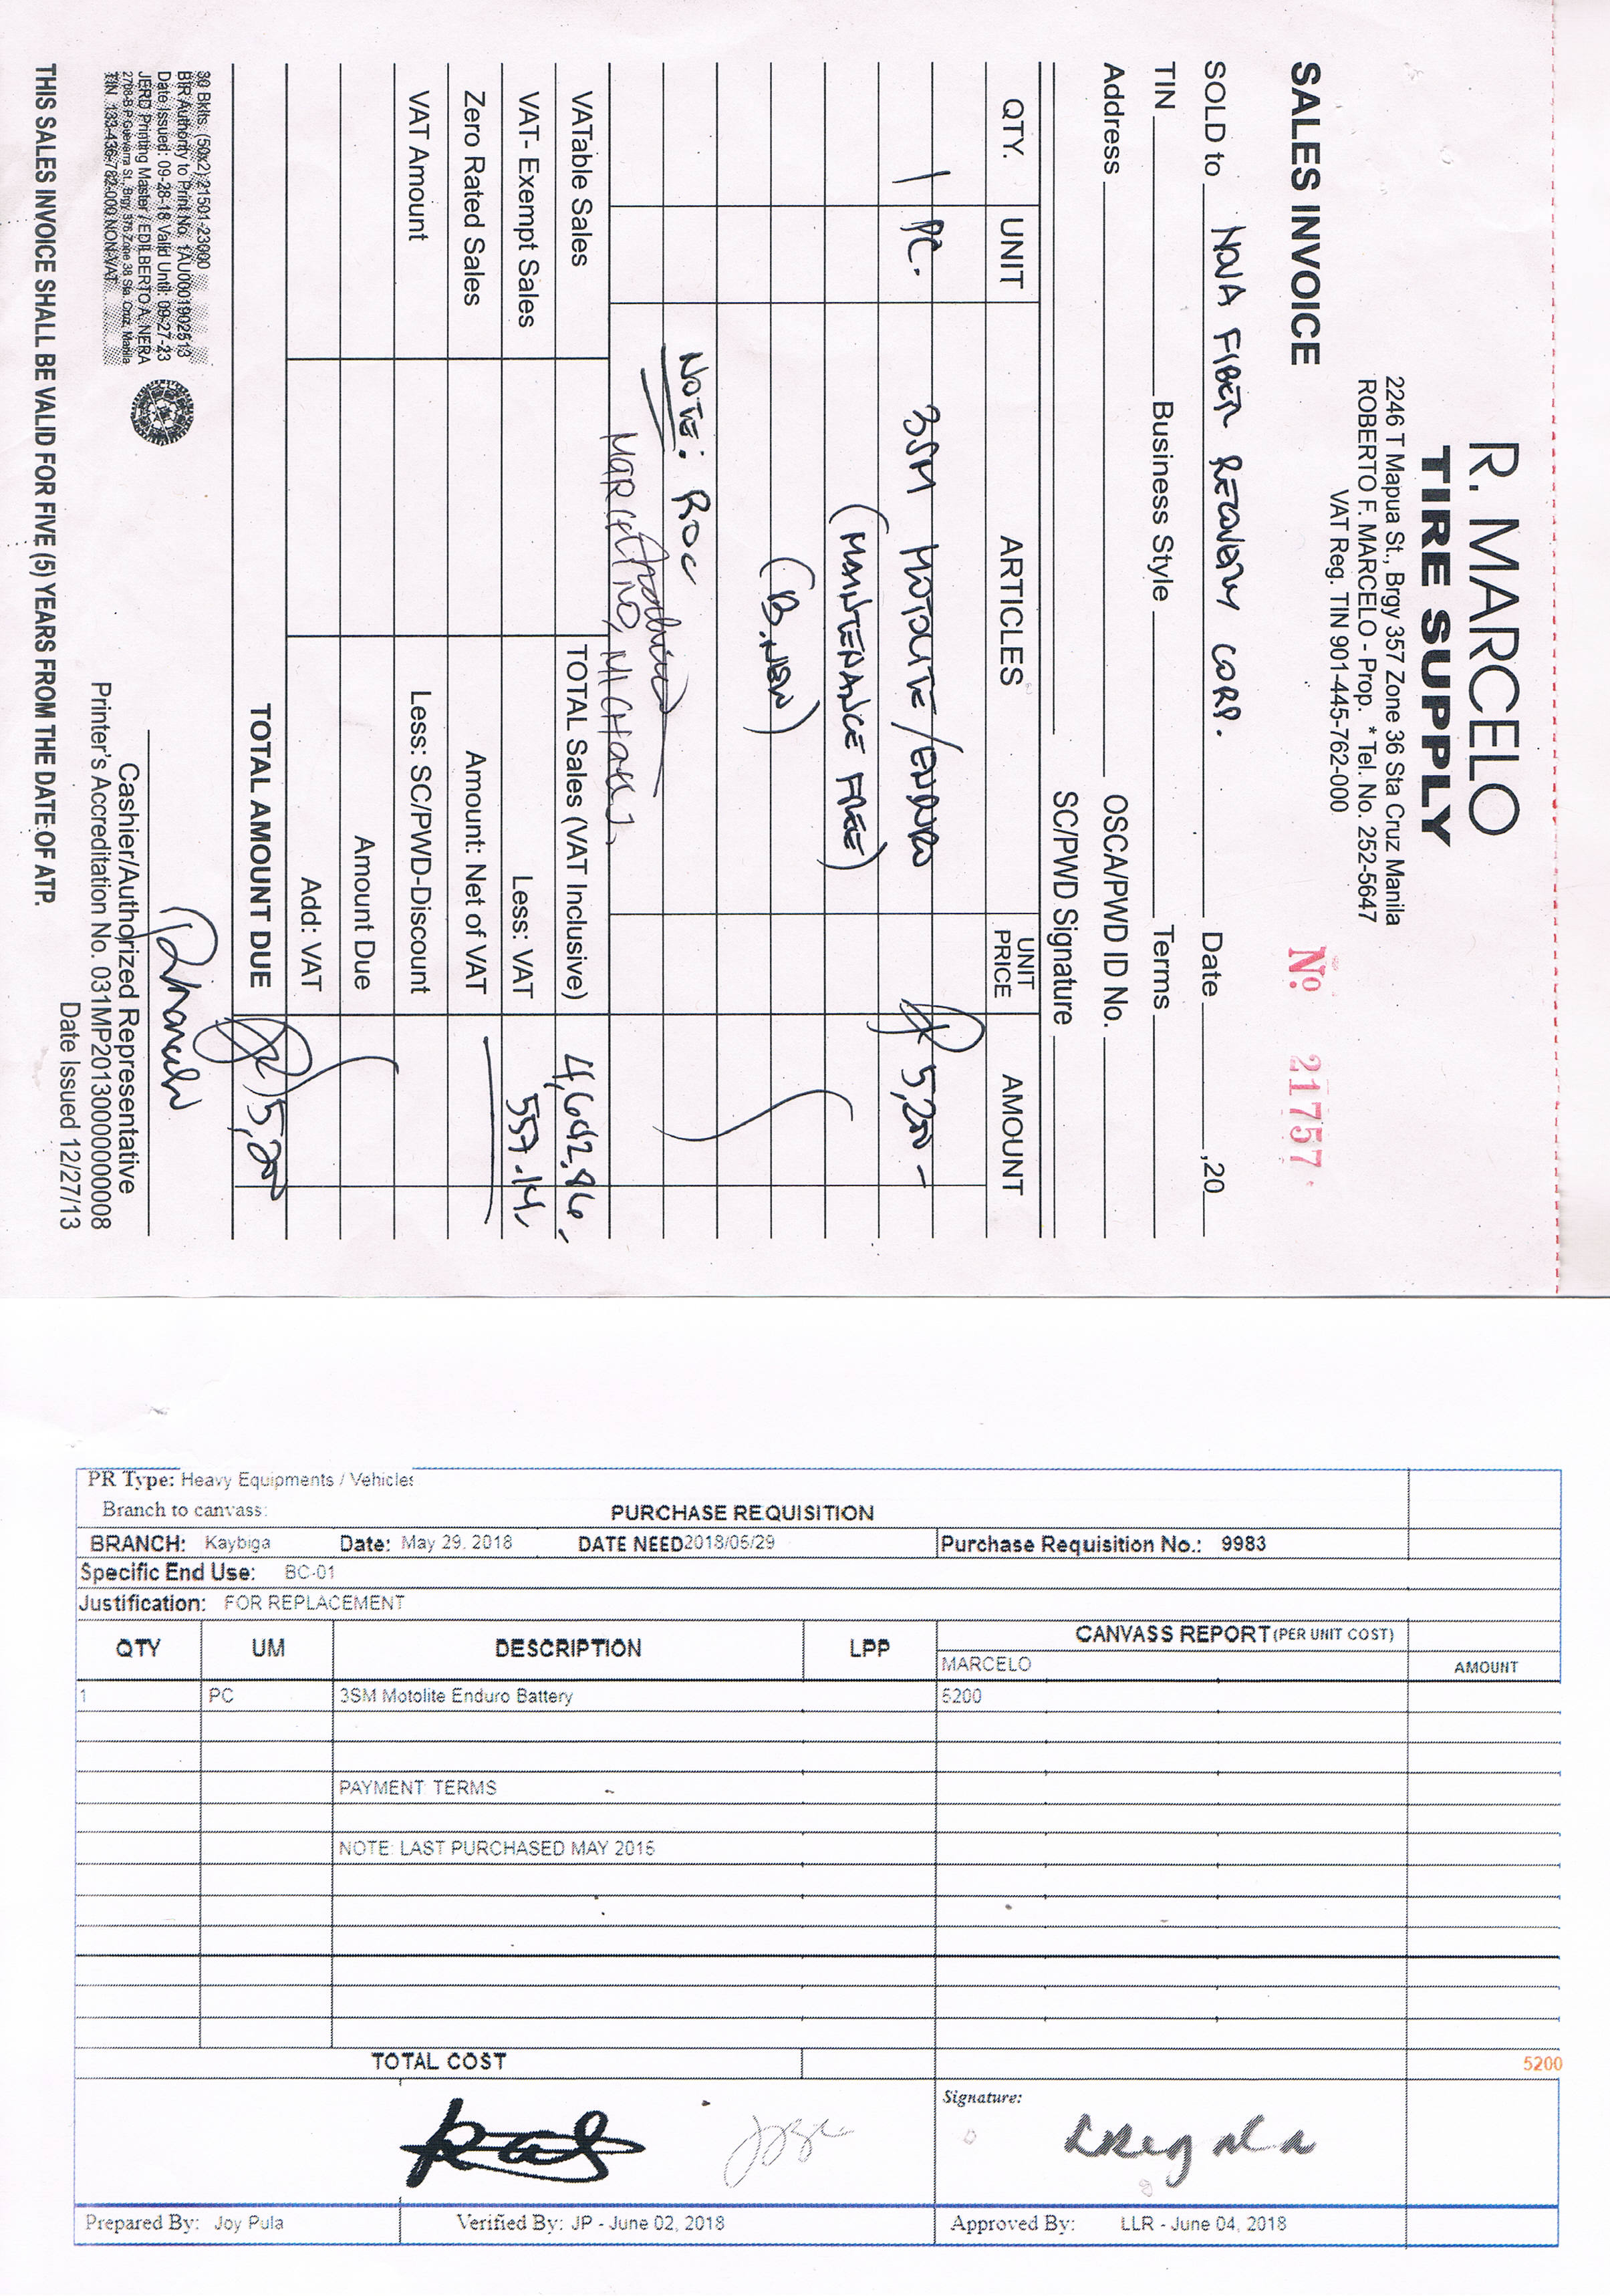 R. MARCELO
TIRE SUPPLY
2246 T Mapua St., Brgy 357 Zone 36 Sta Cruz Manila
ROBERTO F. MARCELO - Prop. * Tel. No. 252-5647
VAT Reg. TIN 901-445-762-000
SALES INVOICE
No. 21757
SOLD to NOVA FIBER RECOVERY CORP. Date ,20
TIN Business Style Terms
Address OSCA/PWD ID No.
SC/PWD Signature
QTY. UNIT ARTICLES UNIT PRICE AMOUNT
1 PC. 3SM MOTOLITE/ENDURO ₱ 5,200 -
(MAINTENANCE FREE)
(B.NEW)
NOTE: ROC
MARCELINO, MICHAEL J.
VATable Sales TOTAL Sales (VAT Inclusive) 4,642.86
VAT- Exempt Sales Less: VAT 557.14
Zero Rated Sales Amount: Net of VAT
VAT Amount Less: SC/PWD-Discount
Amount Due
Add: VAT
TOTAL AMOUNT DUE ₱ 5,200
30 Bklts. (50x2) 21501-23000
BIR Authority to Print No. 1AU0001902513
Date Issued: 09-28-18 Valid Until: 09-27-23
JERD Printing Master / EDILBERTO A. NERA
2708-B P. Guevarra St., Brgy. 376 Zone 38 Sta. Cruz, Manila
TIN 133-436-782-000 NON-VAT
Cashier/Authorized Representative
Printer's Accreditation No. 031MP20130000000008
Date Issued 12/27/13
THIS SALES INVOICE SHALL BE VALID FOR FIVE (5) YEARS FROM THE DATE OF ATP.
PR Type: Heavy Equipments / Vehicles
Branch to canvass: PURCHASE REQUISITION
BRANCH: Kaybiga Date: May 29, 2018 DATE NEED 2018/05/29 Purchase Requisition No.: 9983
Specific End Use: BC-01
Justification: FOR REPLACEMENT
QTY UM DESCRIPTION LPP CANVASS REPORT (PER UNIT COST)
MARCELO AMOUNT
1 PC 3SM Motolite Enduro Battery 5200
PAYMENT TERMS
NOTE: LAST PURCHASED MAY 2015
TOTAL COST 5200
Signature:
Prepared By: Joy Pula Verified By: JP - June 02, 2018 Approved By: LLR - June 04, 2018